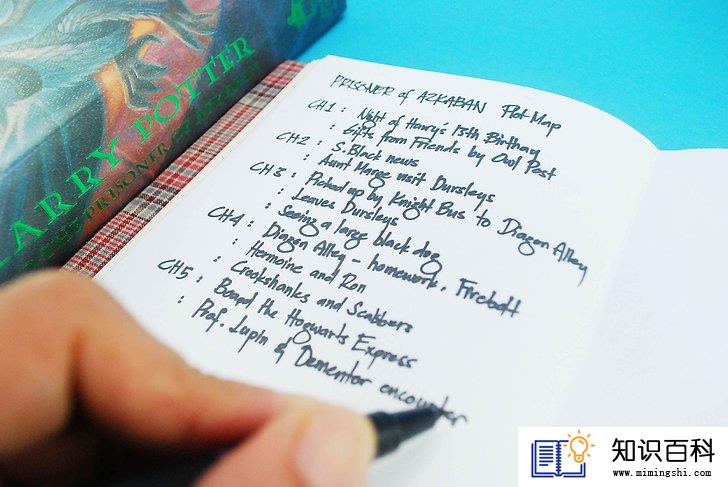 ARRY POTTER
PRISONER OF
PRISONER of AZKABAN Plot Map
CH1 : Night of Harry's 13th Birthday
: Gifts from Friends by Owl Post
CH2 : S. Black news
: Aunt Marge visit Dursleys
CH3 : Picked up by Knight Bus to Diagon Alley
: Leaves Dursleys
: Seeing a large black dog
CH4 : Diagon Alley - homework, Firebolt
: Hermoine and Ron
: Crookshanks and Scabbers
CH5 : Board the Hogwarts Express
: Prof. Lupin & Dementor encounter
知识百科
www.mimingshi.com